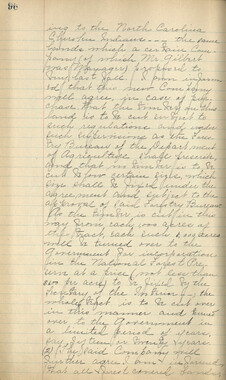 96
ing to the North Carolina
Cherokee Indians — the same
lands which a certain Com-
pany (of which Mr. Gilbert
was Manager) proposed to
last fall. I am inform-
ed that this new Company
will agree, in case of pur-
chase, that the timber on this
land is to be cut subject to
such regulations and under
such supervision as the Fores-
try Bureau of the Department
of Agriculture shall prescribe,
and that no timber is to be
cut below certain size, which
size shall be fixed under the
agreement and subject to the
approval of said Forestry Bureau
As the timber is cut in this
way from each 1000 acres of
the tract, each such 1000 acres
will be turned over to the
Government for incorporation
in the National Forest Re-
serve at a price (not less than
per acre) to be fixed by the
Secretary of the Interior — the
whole tract is to be cut over
in this manner and turned
over to the Government in
a limited period of years,
say fifteen or twenty years.
(2) The said Company will
further agree, I am informed,
that all forest covered lands